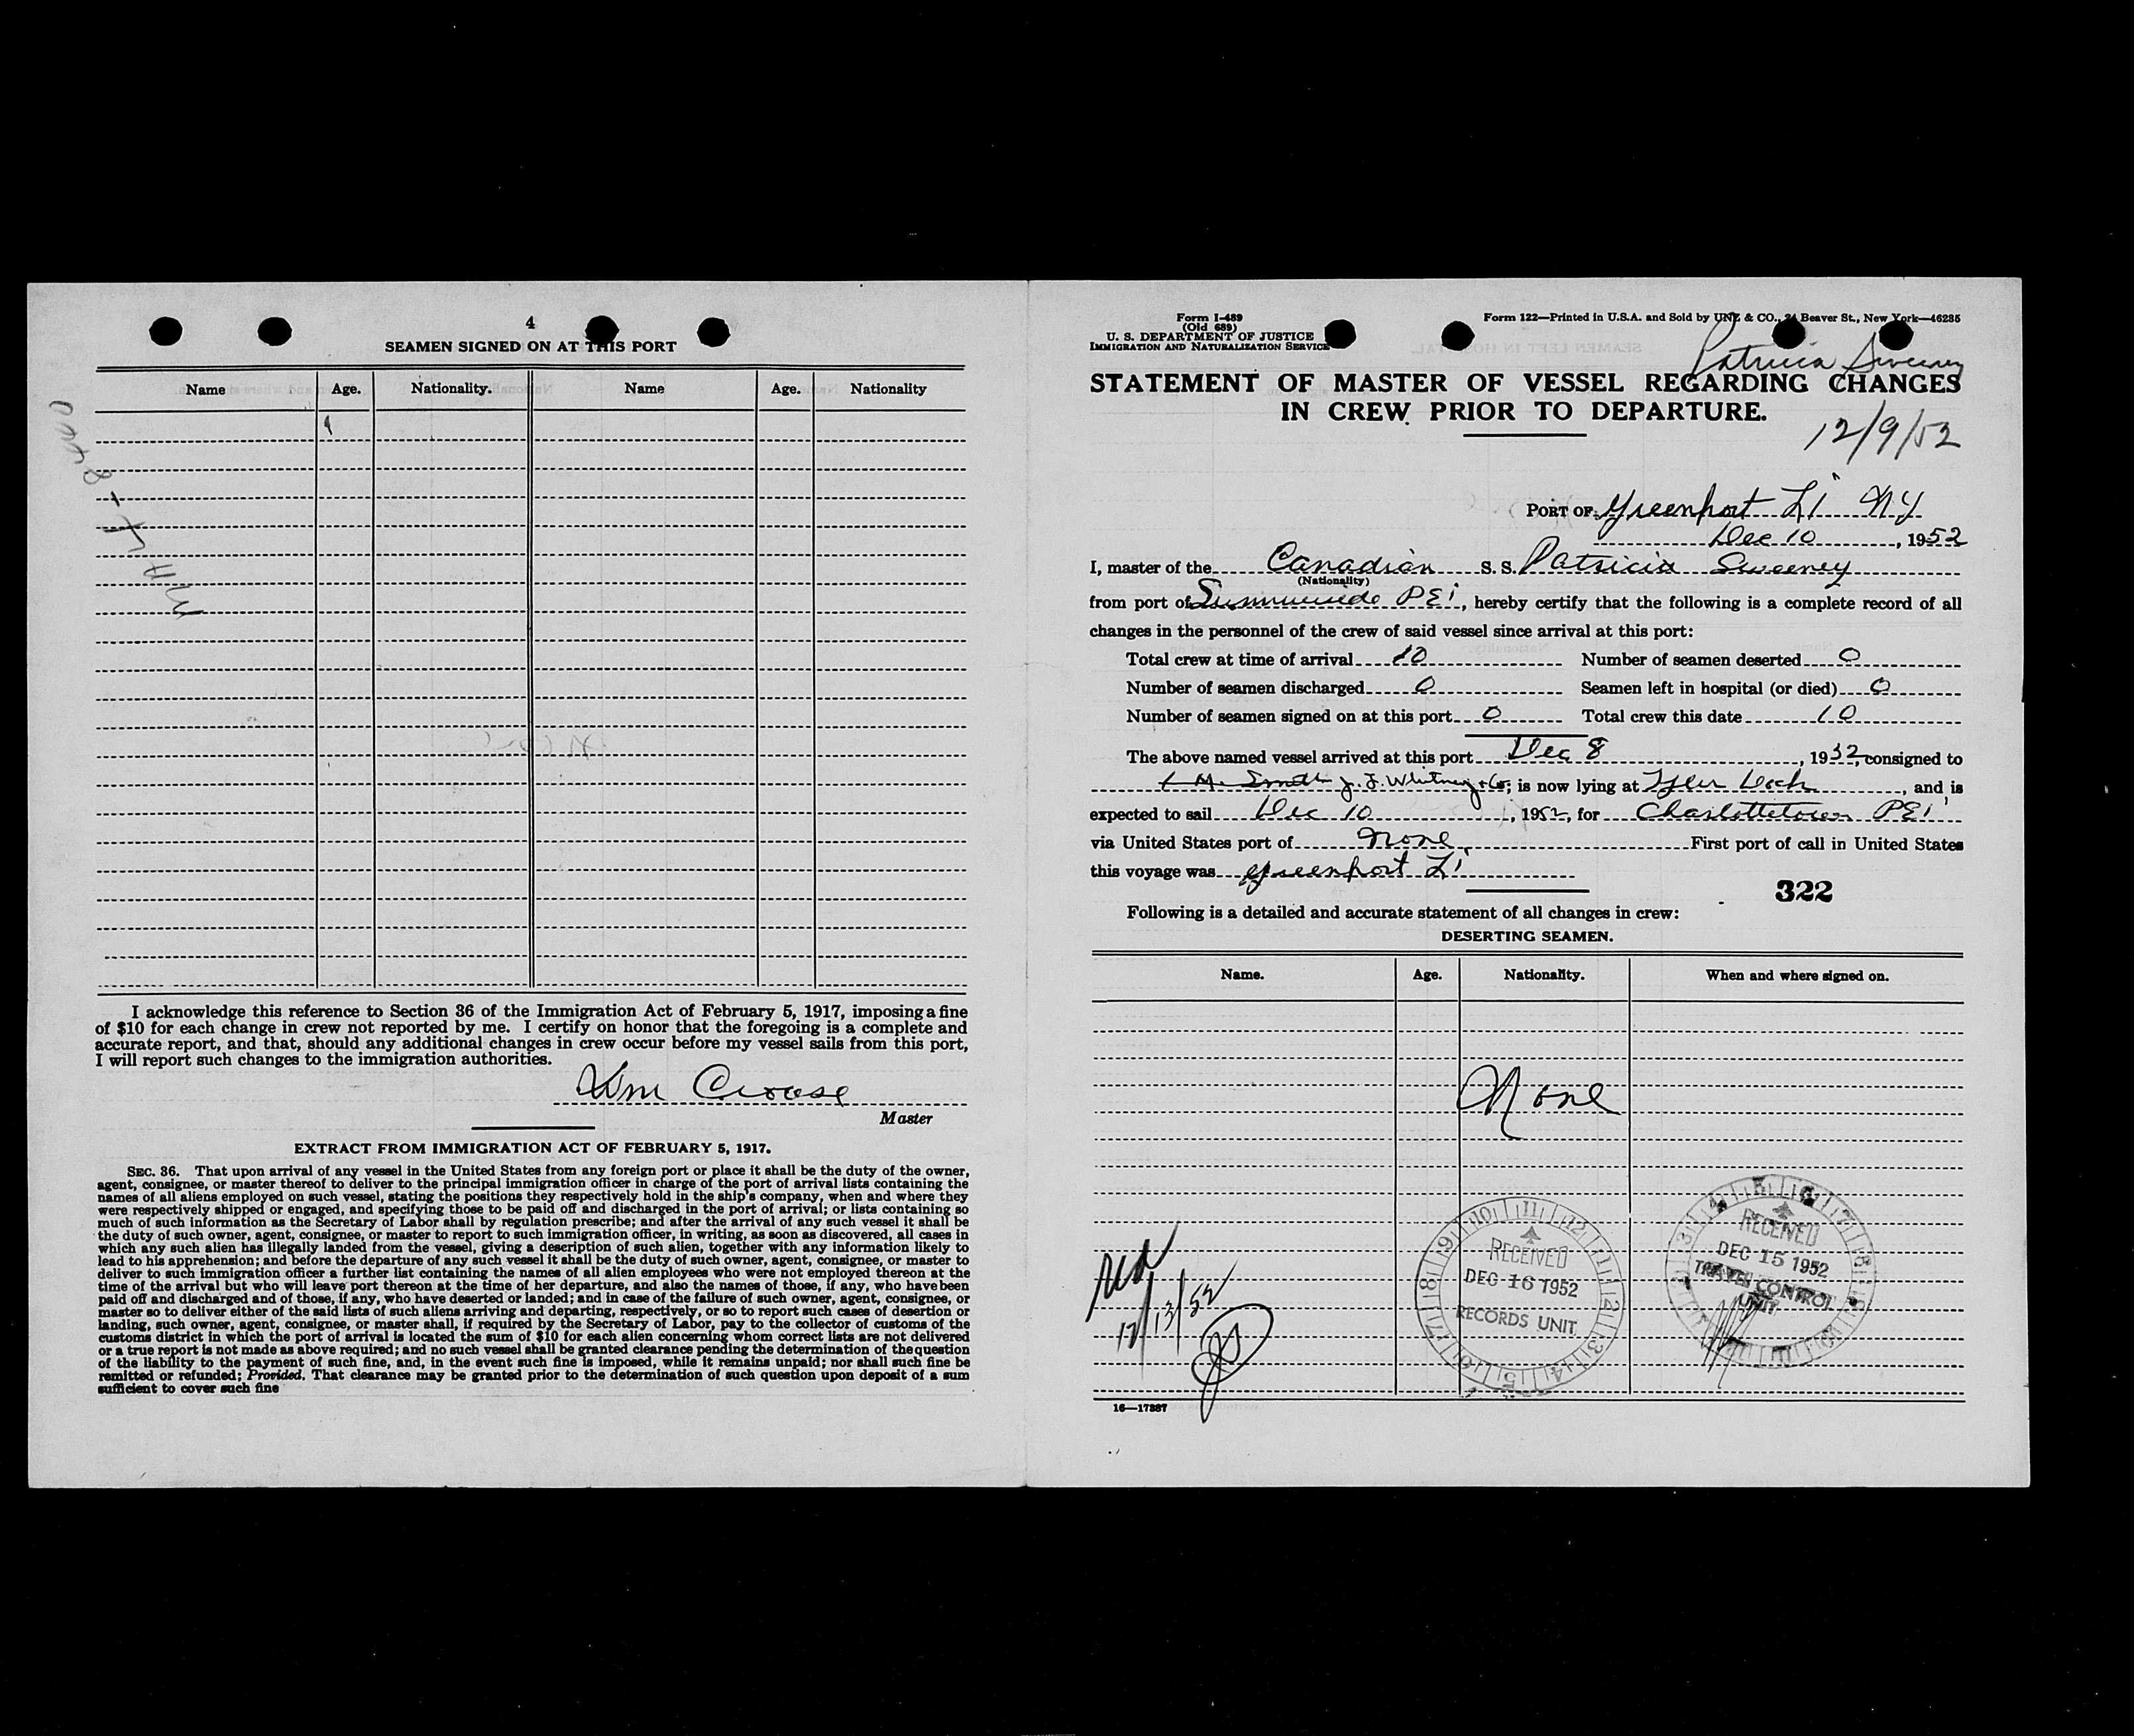 4
SEAMEN SIGNED ON AT THIS PORT
Name Age. Nationality. Name Age. Nationality
I acknowledge this reference to Section 36 of the Immigration Act of February 5, 1917, imposing a fine
of $10 for each change in crew not reported by me. I certify on honor that the foregoing is a complete and
accurate report, and that, should any additional changes in crew occur before my vessel sails from this port,
I will report such changes to the immigration authorities.
Wm Crouse
Master
EXTRACT FROM IMMIGRATION ACT OF FEBRUARY 5, 1917.
SEC. 36. That upon arrival of any vessel in the United States from any foreign port or place it shall be the duty of the owner,
agent, consignee, or master thereof to deliver to the principal immigration officer in charge of the port of arrival lists containing the
names of all aliens employed on such vessel, stating the positions they respectively hold in the ship's company, when and where they
were respectively shipped or engaged, and specifying those to be paid off and discharged in the port of arrival; or lists containing so
much of such information as the Secretary of Labor shall by regulation prescribe; and after the arrival of any such vessel it shall be
the duty of such owner, agent, consignee, or master to report to such immigration officer, in writing, as soon as discovered, all cases in
which any such alien has illegally landed from the vessel, giving a description of such alien, together with any information likely to
lead to his apprehension; and before the departure of any such vessel it shall be the duty of such owner, agent, consignee, or master to
deliver to such immigration officer a further list containing the names of all alien employees who were not employed thereon at the
time of the arrival but who will leave port thereon at the time of her departure, and also the names of those, if any, who have been
paid off and discharged and of those, if any, who have deserted or landed; and in case of the failure of such owner, agent, consignee, or
master so to deliver either of the said lists of such aliens arriving and departing, respectively, or so to report such cases of desertion or
landing, such owner, agent, consignee, or master shall, if required by the Secretary of Labor, pay to the collector of customs of the
customs district in which the port of arrival is located the sum of $10 for each alien concerning whom correct lists are not delivered
or a true report is not made as above required; and no such vessel shall be granted clearance pending the determination of the question
of the liability to the payment of such fine, and, in the event such fine is imposed, while it remains unpaid; nor shall such fine be
remitted or refunded; Provided, That clearance may be granted prior to the determination of such question upon deposit of a sum
sufficient to cover such fine
Form I-489
(Old 689)
U. S. DEPARTMENT OF JUSTICE
IMMIGRATION AND NATURALIZATION SERVICE
Form 122—Printed in U.S.A. and Sold by UNZ & CO., 24 Beaver St., New York—46285
Patricia Sweeney
STATEMENT OF MASTER OF VESSEL REGARDING CHANGES
IN CREW PRIOR TO DEPARTURE.
12/9/52
PORT OF Greenport LI NY
Dec 10, 1952
I, master of the Canadian S. S. Patricia Sweeney
(Nationality)
from port of Summerside PEI, hereby certify that the following is a complete record of all
changes in the personnel of the crew of said vessel since arrival at this port:
Total crew at time of arrival 10 Number of seamen deserted 0
Number of seamen discharged 0 Seamen left in hospital (or died) 0
Number of seamen signed on at this port 0 Total crew this date 10
The above named vessel arrived at this port Dec 8, 1952, consigned to
M. Smith J. F. Whitney & Co; is now lying at Tyler Dock, and is
expected to sail Dec 10, 1952, for Charlottetown PEI
via United States port of None First port of call in United States
this voyage was Greenport LI
322
Following is a detailed and accurate statement of all changes in crew:
DESERTING SEAMEN.
Name. Age. Nationality. When and where signed on.
None
12/13/52
RECEIVED
DEC 16 1952
RECORDS UNIT
RECEIVED
DEC 15 1952
TRAVEL CONTROL
UNIT
16—17387